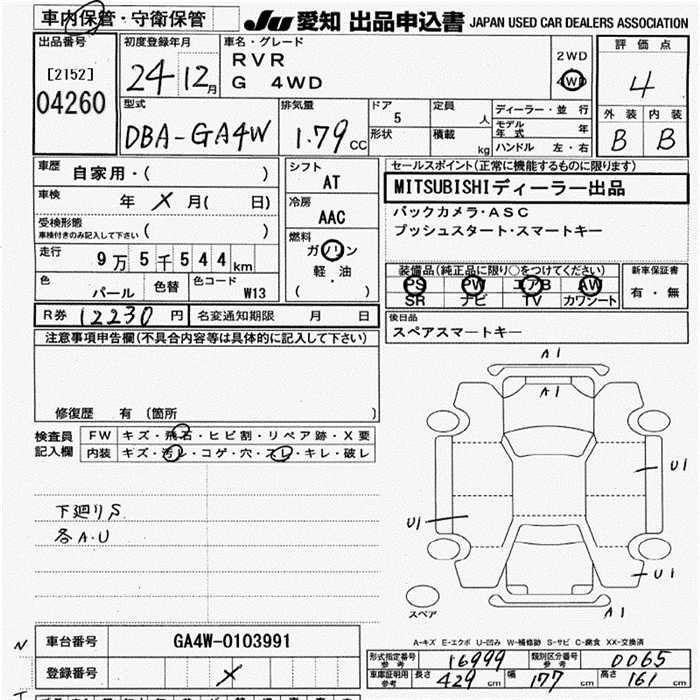 車内保管・守衛保管
JU 愛知 出品申込書 JAPAN USED CAR DEALERS ASSOCIATION
出品番号
[2152]
04260
初度登録年月
24 12月
車名・グレード
RVR
G 4WD
2WD
4WD
評価点
4
外装 内装
B B
型式
DBA-GA4W
排気量
1.79 CC
ドア
5
形状
定員
人
積載
kg
ディーラー・並行
モデル年式 年
ハンドル 左・右
車歴
自家用・( )
車検
年 X 月( 日)
受検形態
車検付きのみ記入して下さい ( )
走行
9万5千544km
色
パール
色替
色コード
W13
シフト
AT
冷房
AAC
燃料
ガソリン
軽・油
( )
セールスポイント(正常に機能するものに限ります)
MITSUBISHIディーラー出品
バックカメラ・ASC
プッシュスタート・スマートキー
装備品(純正品に限り○をつけてください)
PS PW エアB AW
SR ナビ TV カワシート
新車保証書
有・無
後日品
スペアスマートキー
R券 12230 円
名変通知期限 月 日
注意事項申告欄(不具合内容等は具体的に記入して下さい)
修復歴 有 〔箇所 〕
検査員
記入欄
FW キズ・飛石・ヒビ割・リペア跡・X要
内装 キズ・汚レ・コゲ・穴・スレ・キレ・破レ
下廻りS
各A.U
A1
A1
U1
U1
U1
A1
スペア
A-キズ E-エクボ U-凹み W-補修跡 S-サビ C-腐食 XX-交換済
車台番号 GA4W-0103991
登録番号 X
形式指定番号
参考
16999
類別区分番号
参考
0065
車庫証明用
参考
長さ 429 cm 幅 177 cm 高さ 161 cm